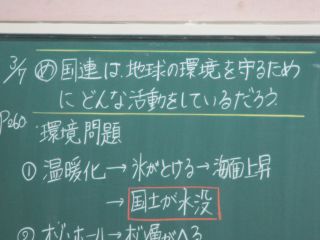 3/7 め 国連は、地球の環境を守るため
に どんな活動をしているだろう。
P260 環境問題
① 温暖化→氷がとける→海面上昇
→ 国土が水没
② オゾンホール→オゾン層がへる